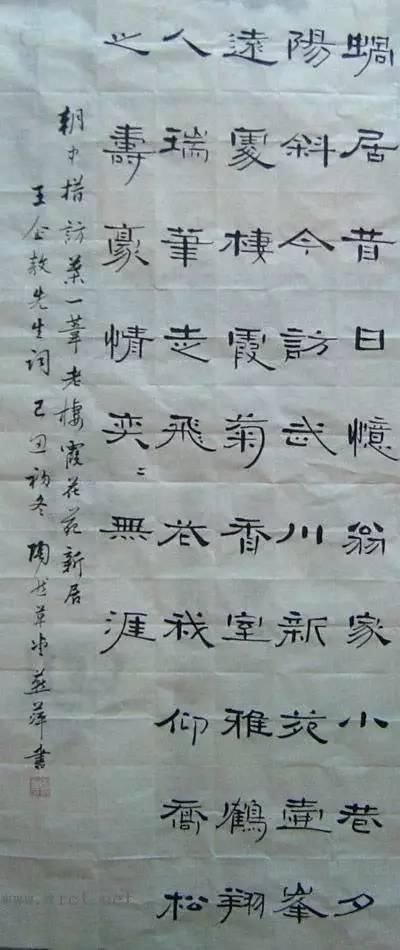 蝸居昔日憶翁家小巷夕
陽斜今訪武川新苑壺峯
遠處棲霞菊香室雅鶴翔
人瑞筆走飛花我仰喬松
之壽豪情奕〻無涯
朝中措訪葉一葦老棲霞花苑新居
王企敖先生词己丑初冬陶然草燕萍書